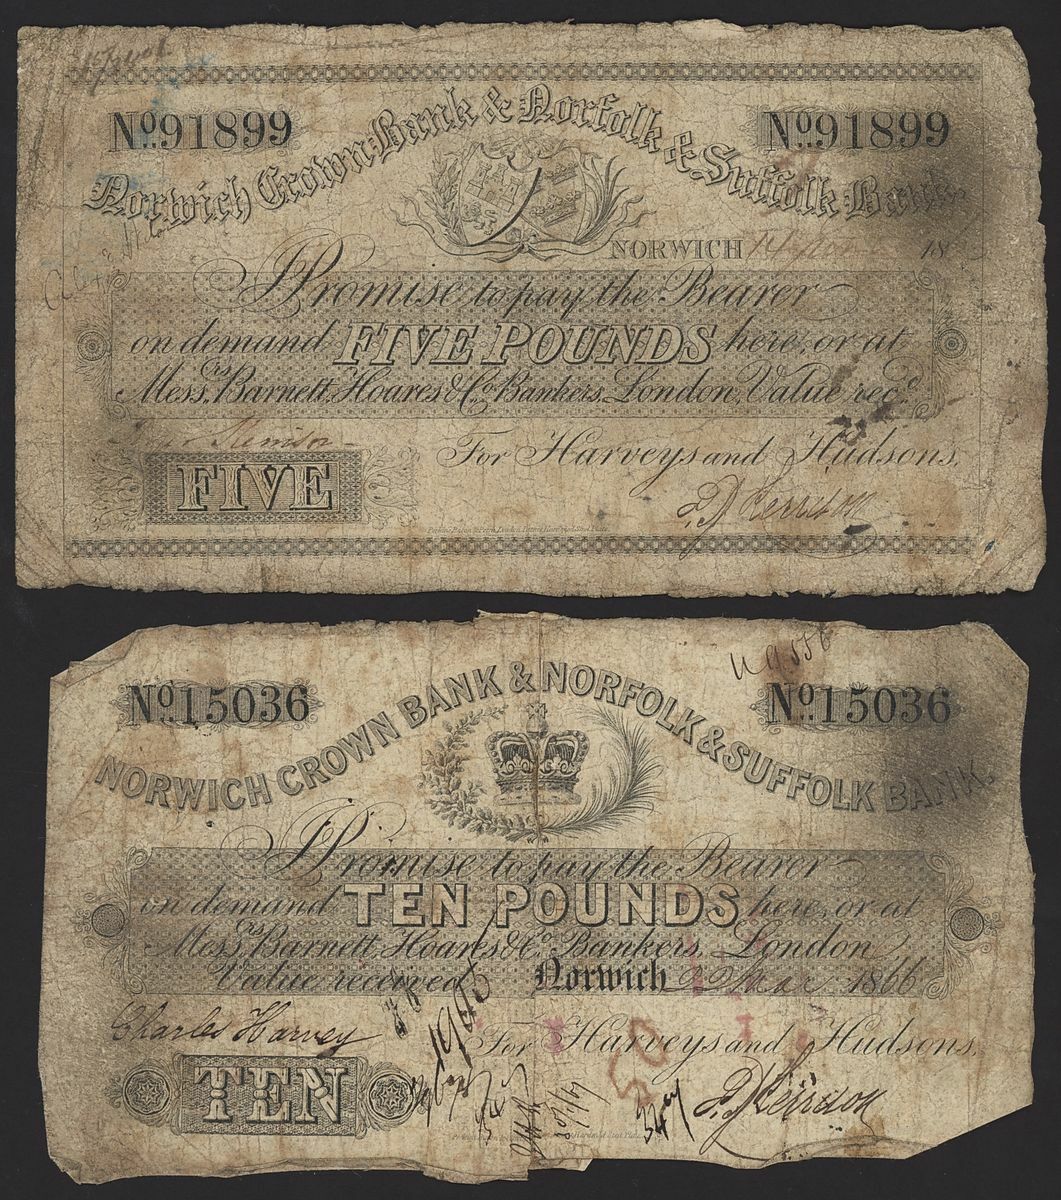 No. 91899
No. 91899
Norwich Crown Bank & Norfolk & Suffolk Bank.
NORWICH 18
I Promise to pay the Bearer
on demand FIVE POUNDS here, or at
Messrs. Barnett, Hoares & Co. Bankers, London, Value recd.
For Harveys and Hudsons,
FIVE
No. 15036
No. 15036
NORWICH CROWN BANK & NORFOLK & SUFFOLK BANK.
I Promise to pay the Bearer
on demand TEN POUNDS here, or at
Messrs. Barnett, Hoares & Co. Bankers, London
Value received Norwich 1866
Charles Harvey
For Harveys and Hudsons,
TEN